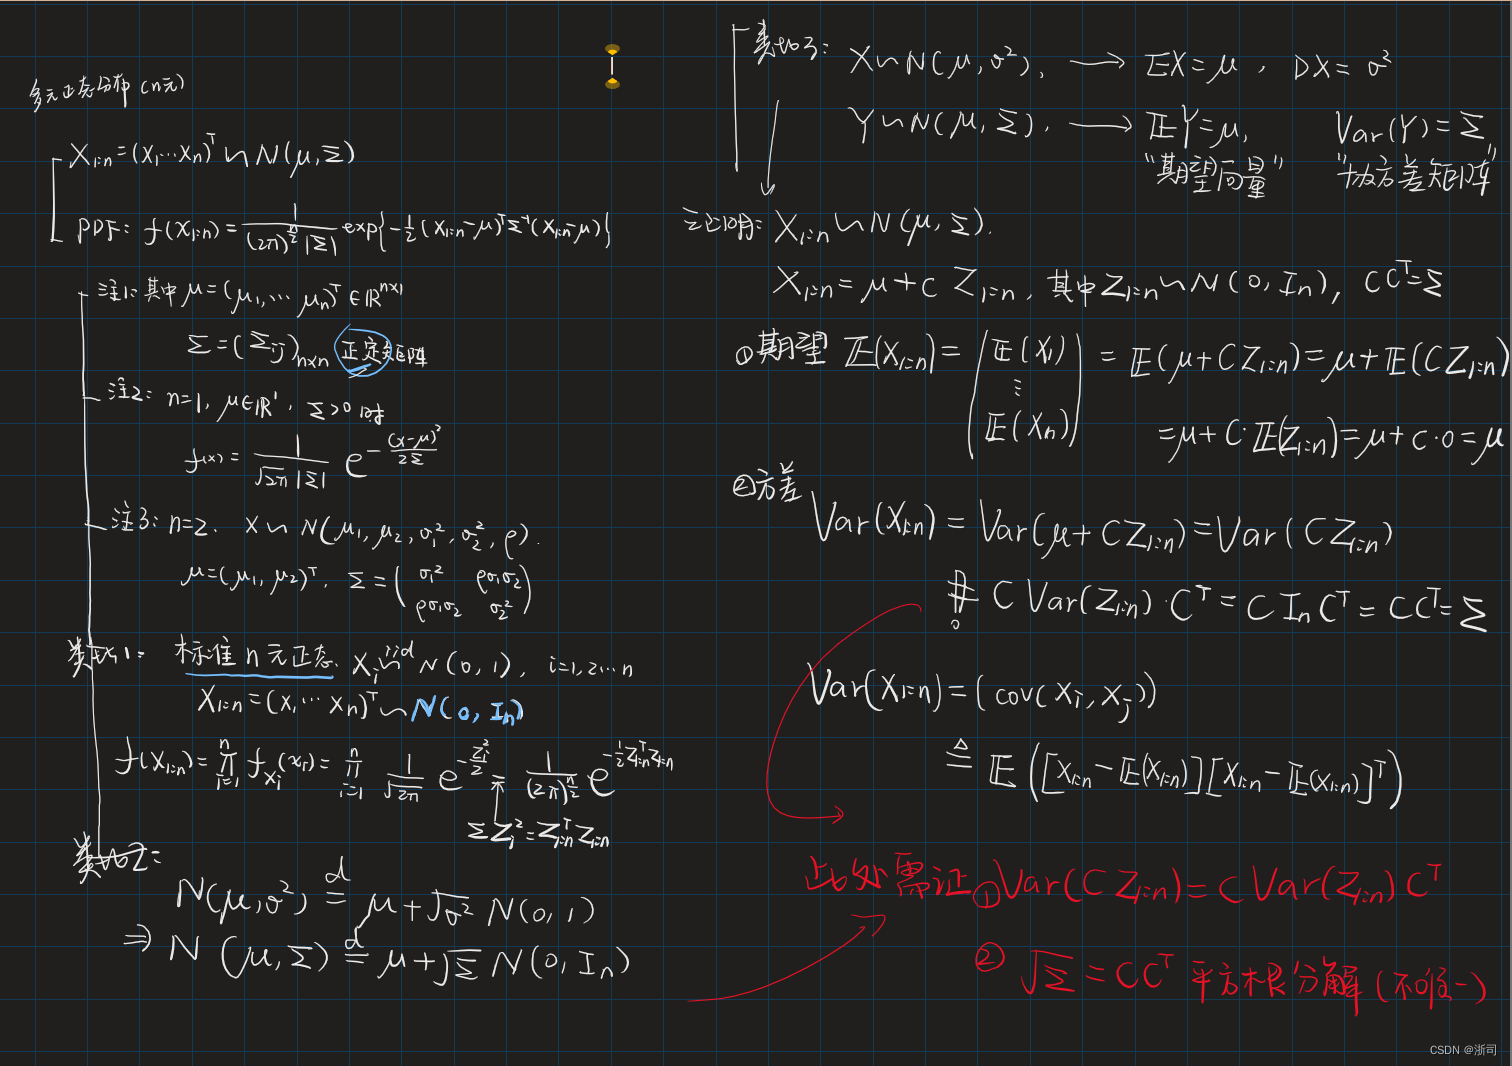 多元正态分布 (n元)
X₁:ₙ = (X₁⋯Xₙ)ᵀ ∽ N(μ, Σ)
PDF: f(x₁:ₙ) = 1/((2π)^(n/2) |Σ|) exp{-1/2 (x₁:ₙ-μ)ᵀ Σ⁻¹ (x₁:ₙ-μ)}
注1: 其中 μ = (μ₁, ⋯ μₙ)ᵀ ∈ ℝⁿˣ¹
Σ = (Σij)n×n 正定矩阵
注2: n=1, μ∈ℝ¹, Σ>0 时
f(x) = 1/(√2π |Σ|) e^(-(x-μ)²/2Σ)
注3: n=2. X ∽ N(μ₁, μ₂, σ₁², σ₂², ρ).
μ = (μ₁, μ₂)ᵀ, Σ = ( σ₁² ρσ₁σ₂
ρσ₁σ₂ σ₂² )
类比1: 标准n元正态. Xi ∽iid N(0,1), i=1,2⋯n
X₁:ₙ = (X₁⋯Xₙ)ᵀ ∽ N(0, Iₙ)
f(X₁:ₙ) = ∏ⁿᵢ₌₁ f_Xi(xi) = ∏ⁿᵢ₌₁ 1/√2π e^(-Zi²/2) = 1/(2π)^(n/2) e^(-1/2 Z₁:ₙᵀ Z₁:ₙ)
ΣZi² = Z₁:ₙᵀ Z₁:ₙ
类比2:
N(μ,σ²) =ᵈ μ+√σ² N(0,1)
⇒ N(μ,Σ) =ᵈ μ+√Σ N(0,Iₙ)
类比3: X∽N(μ,σ²), → 𝔼X=μ, DX=σ²
Y∽N(μ,Σ). → 𝔼Y=μ, Var(Y)=Σ
"期望向量" "协方差矩阵"
证明: X₁:ₙ ∽ N(μ,Σ).
X₁:ₙ = μ+C Z₁:ₙ, 其中Z₁:ₙ∽N(0,Iₙ), CCᵀ=Σ
①期望 𝔼(X₁:ₙ) = ( 𝔼(X₁) ⋮ 𝔼(Xₙ) ) = 𝔼(μ+CZ₁:ₙ) = μ+𝔼(CZ₁:ₙ)
=μ+C·𝔼(Z₁:ₙ)=μ+C·0=μ
②方差
Var(X₁:ₙ) = Var(μ+CZ₁:ₙ) = Var(CZ₁:ₙ)
= C Var(Z₁:ₙ)·Cᵀ = C Iₙ Cᵀ = CCᵀ = Σ
Var(X₁:ₙ) = (cov(Xi, Xj))
≜ 𝔼([X₁:ₙ-𝔼(X₁:ₙ)][X₁:ₙ-𝔼(X₁:ₙ)]ᵀ)
此处需证①Var(CZ₁:ₙ)=C Var(Z₁:ₙ)Cᵀ
② √Σ = CCᵀ 平方根分解(不唯一)
CSDN @浙司